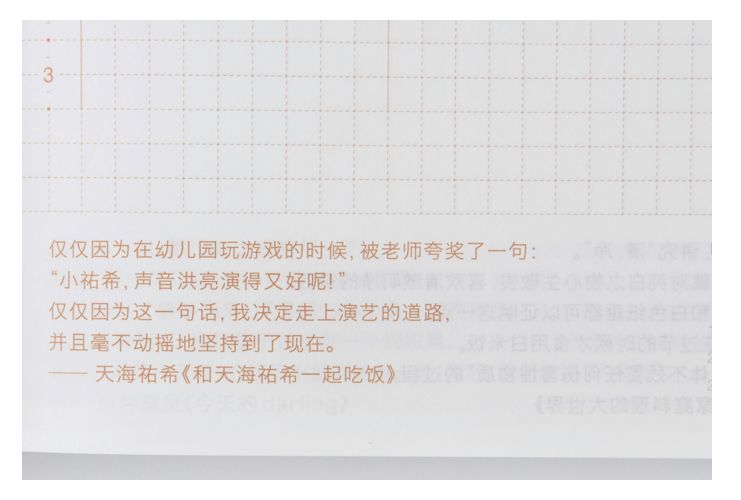 3
仅仅因为在幼儿园玩游戏的时候，被老师夸奖了一句：
“小祐希，声音洪亮演得又好呢！”
仅仅因为这一句话，我决定走上演艺的道路，
并且毫不动摇地坚持到了现在。
—— 天海祐希《和天海祐希一起吃饭》